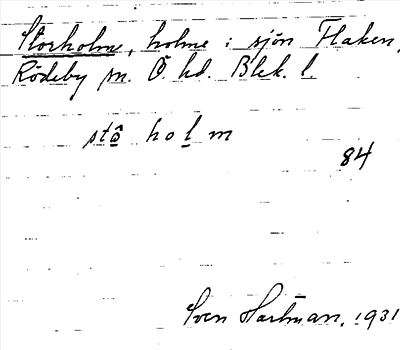 Storholme, holme i sjön Flaken,
Rödeby sn. Ö. hd. Blek. l.
stô holm
84
Sven Hartman, 1931